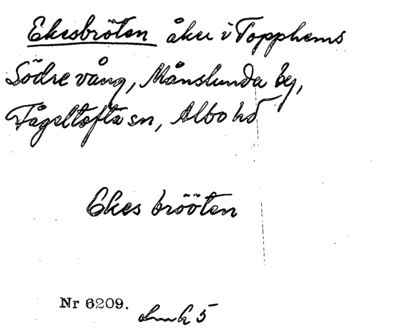 Ekesbröten åker i Topphems
Södre vång, Månslunda by,
Fågeltofta sn, Albo hd
Ekes brööten
Nr 6209.